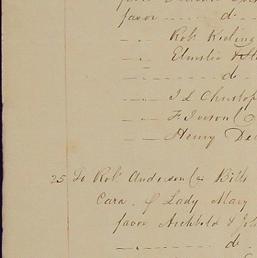 favor — d. —
— . — Robt Kieling
— . — Elmslie &
— . — do —
— . — J L Christop
— . — F Iverson
— . — Henry De
25 To Robt Anderson Bills
Cara. of Lady Mary
favor Archbold & Joh
— . — do —